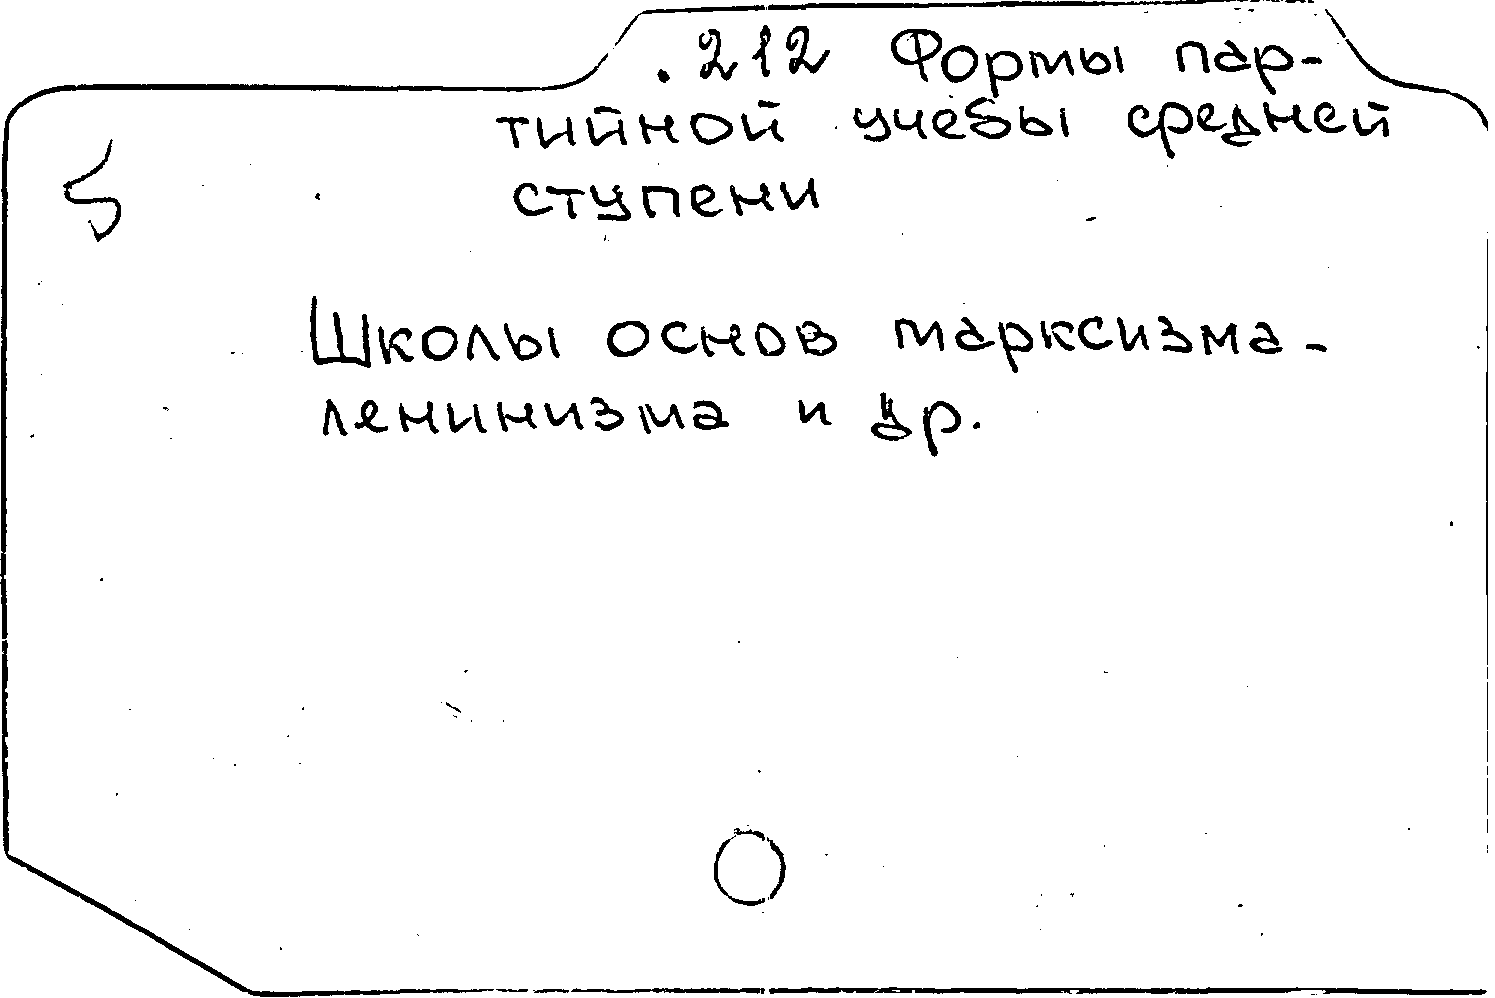 .212 Формы пар-
тийной учебы средней
ступени
Школы основ марксизма-
ленинизма и др.